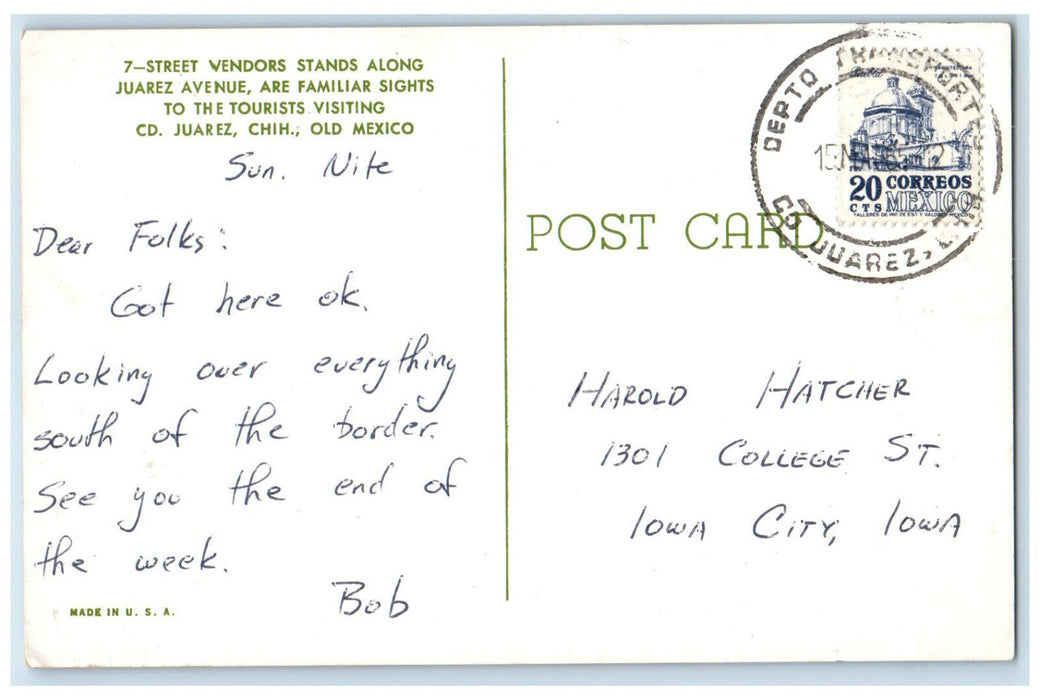 7—STREET VENDORS STANDS ALONG
JUAREZ AVENUE, ARE FAMILIAR SIGHTS
TO THE TOURISTS VISITING
CD. JUAREZ, CHIH., OLD MEXICO
Sun. Nite
Dear Folks:
Got here ok.
Looking over everything
south of the border.
See you the end of
the week.
Bob
MADE IN U. S. A.
POST CARD
DEPTO TRANSPORTES
CD. JUAREZ,
20 CTS
CORREOS
MEXICO
HAROLD HATCHER
1301 COLLEGE ST.
IOWA CITY, IOWA